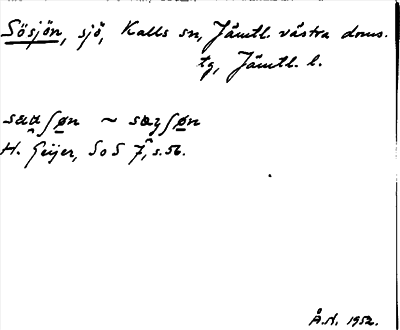 Sösjön, sjö, Kalls sn, Jämtl. västra doms.
tg, Jämtl. l.
H. Geijer, SoS 7, s. 56.
Å.N. 1952.